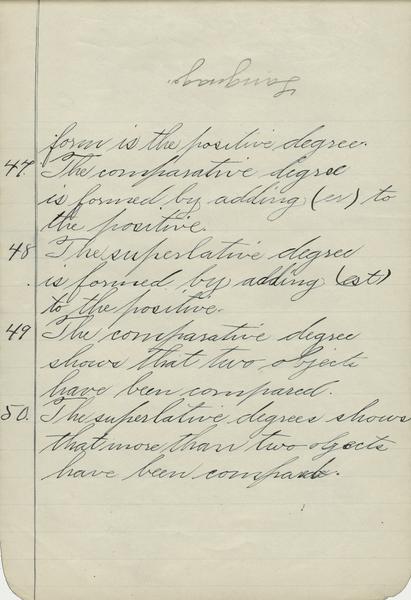 Language.
form is the positive degree.
47. The comparative degree
is formed by adding (er) to
the positive.
48 The superlative degree
. is formed by adding (est)
to the positive.
49 The comparative degree
shows that two objects
have been compared.
50. The superlative degrees shows
that more than two objects
have been compared.